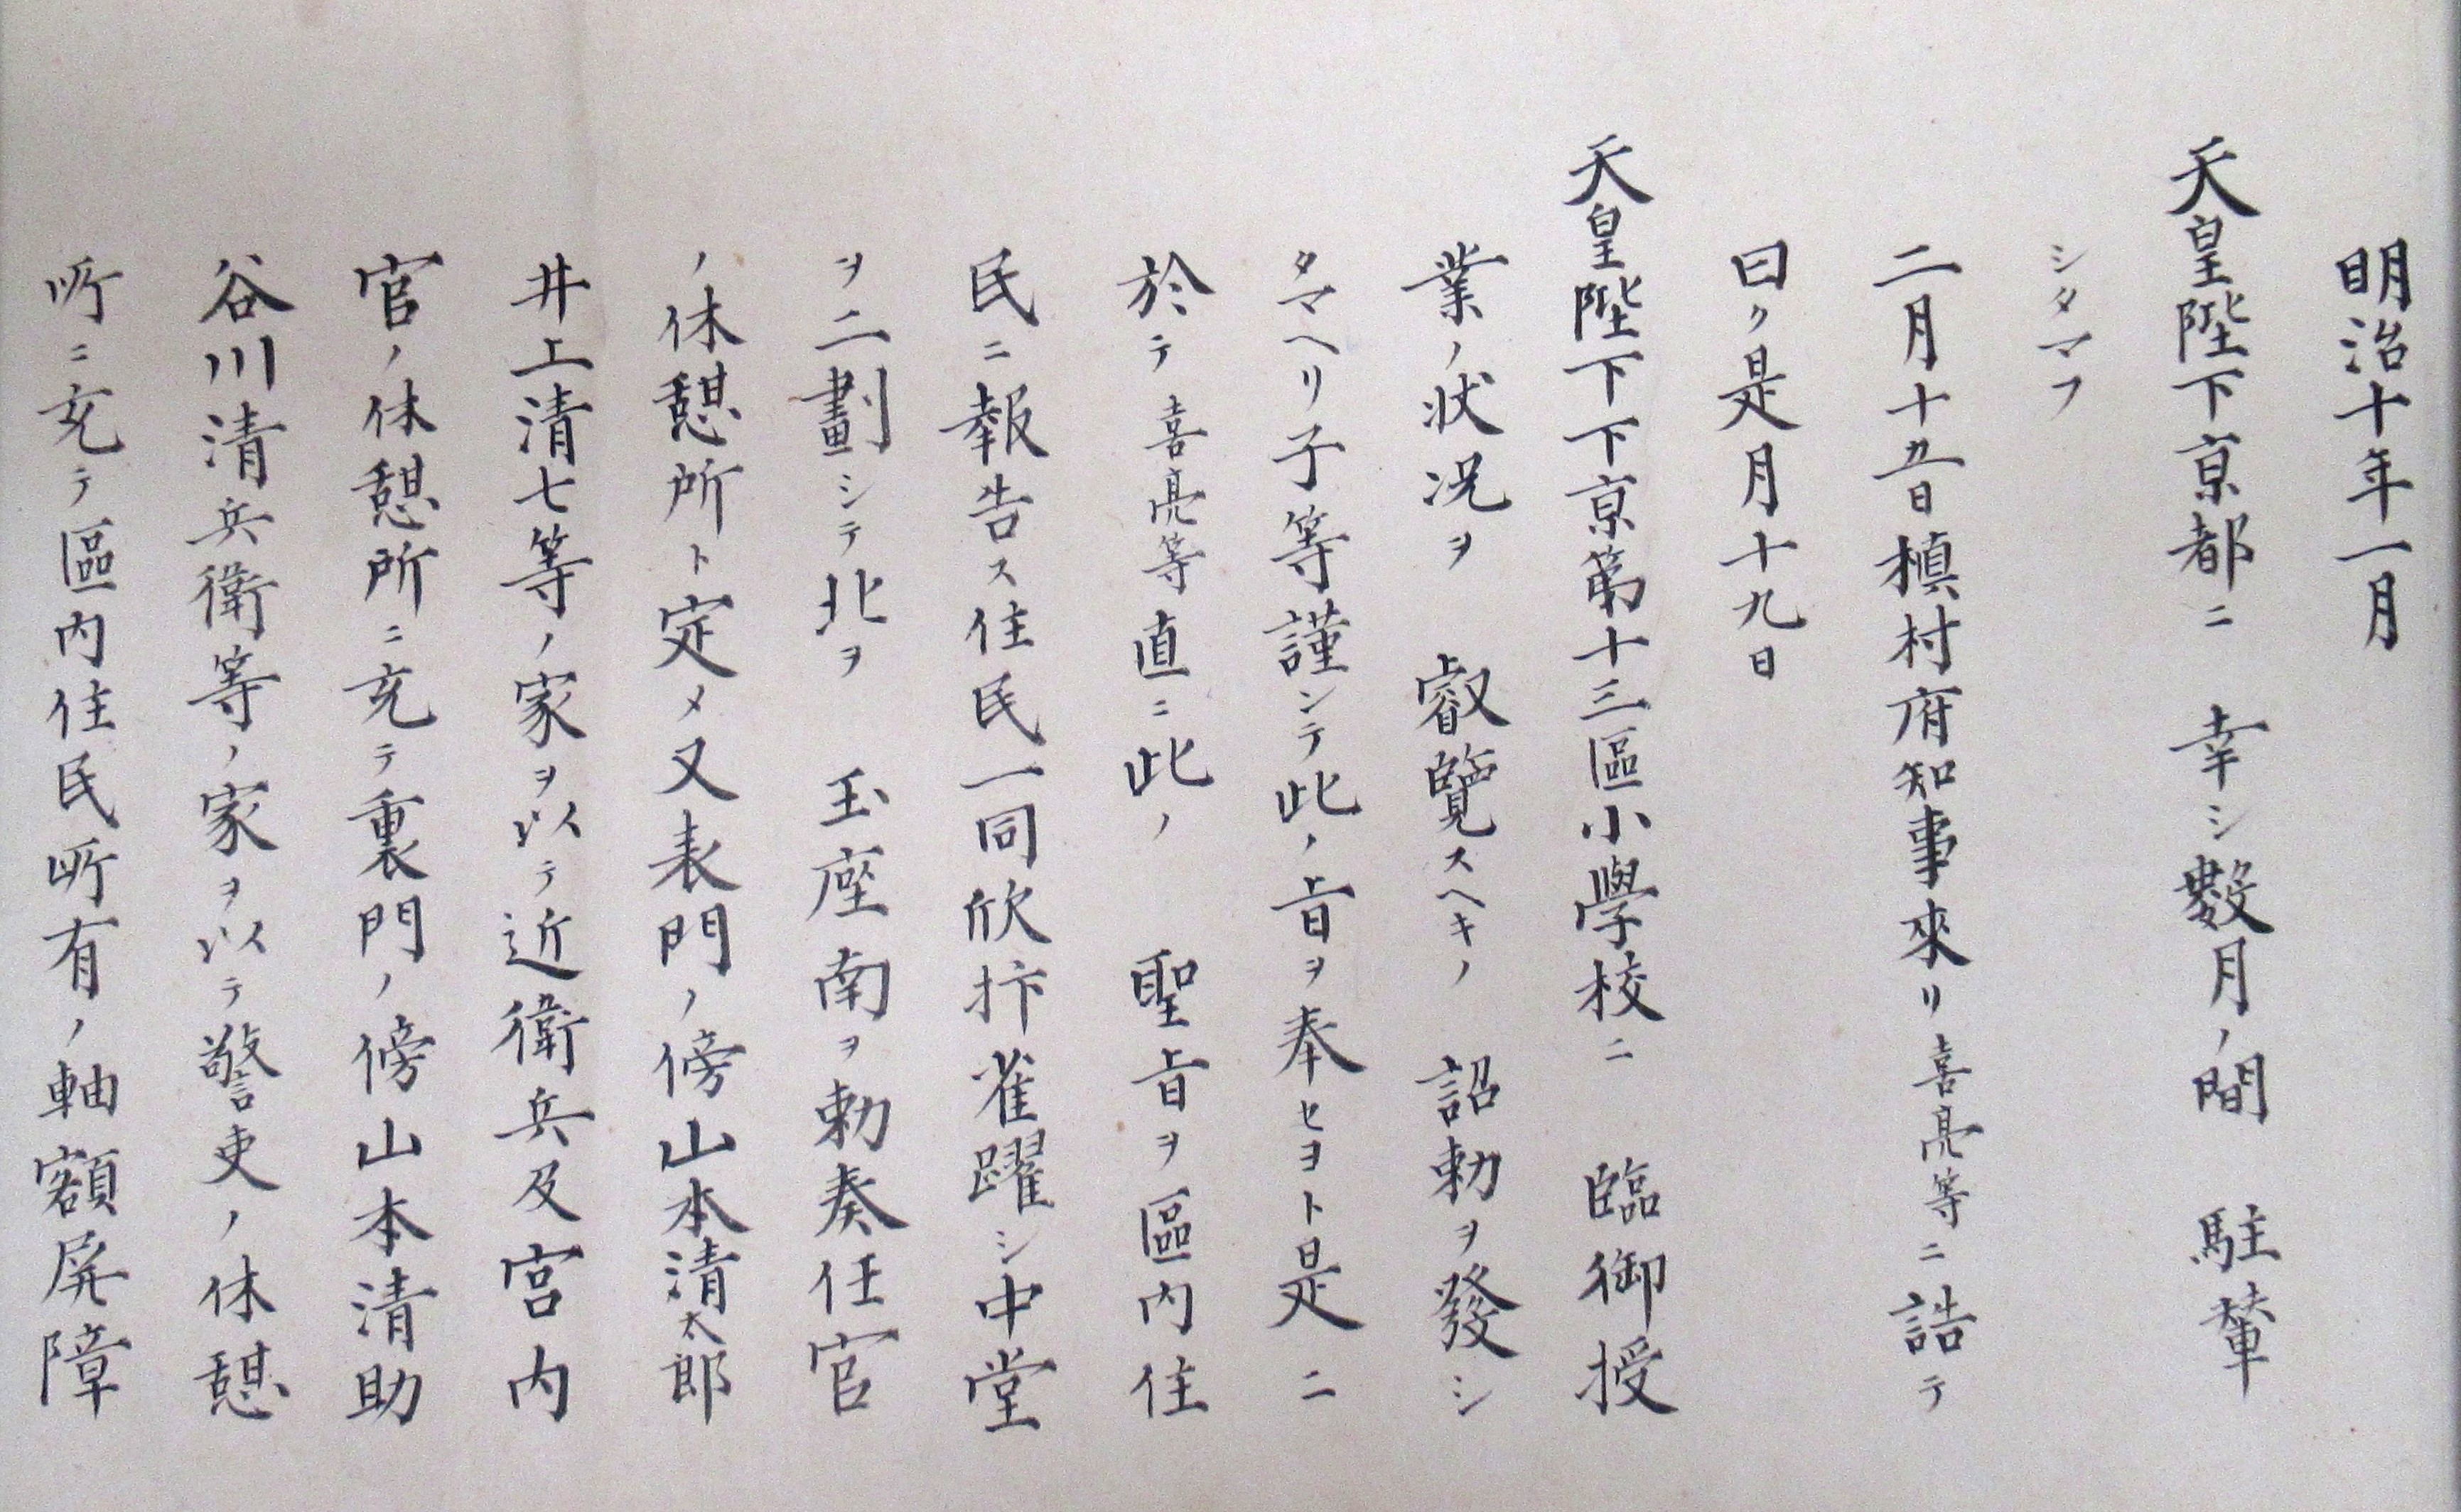 明治十年一月
天皇陛下京都ニ　幸シ數月ノ間　駐輦
シタマフ
二月十五日槙村府知事來リ喜亮等ニ誥テ
曰ク是月十九日
天皇陛下下京第十三區小學校ニ　臨御授
業ノ状況ヲ　叡覽スヘキノ　詔勅ヲ發シ
タマヘリ子等謹ンテ此ノ旨ヲ奉セヨト是ニ
於テ喜亮等直ニ此ノ　聖旨ヲ區内住
民ニ報告ス住民一同欣抃雀躍シ中堂
ヲ二劃シテ北ヲ　玉座南ヲ勅奏任官
ノ休憩所ト定メ又表門ノ傍山本清太郎
井上清七等ノ家ヲ以テ近衛兵及宮内
官ノ休憩所ニ充テ裏門ノ傍山本清助
谷川清兵衛等ノ家ヲ以テ警吏ノ休憩
所ニ充テ區内住民所有ノ軸額屏障